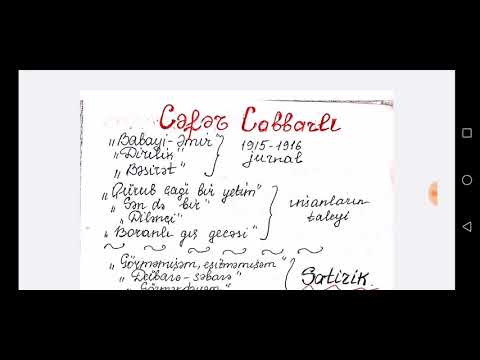 Cəfər Cabbarlı
„Babayi-Əmir"
„Dirilik"
„Bəsirət"
1915-1916
jurnal
„Qürub çağı bir yetim"
„Sən də bir"
„Dilənçi"
„Boranlı qış gecəsi"
insanların
taleyi
„Görməmişəm, eşitməmişəm"
Satirik